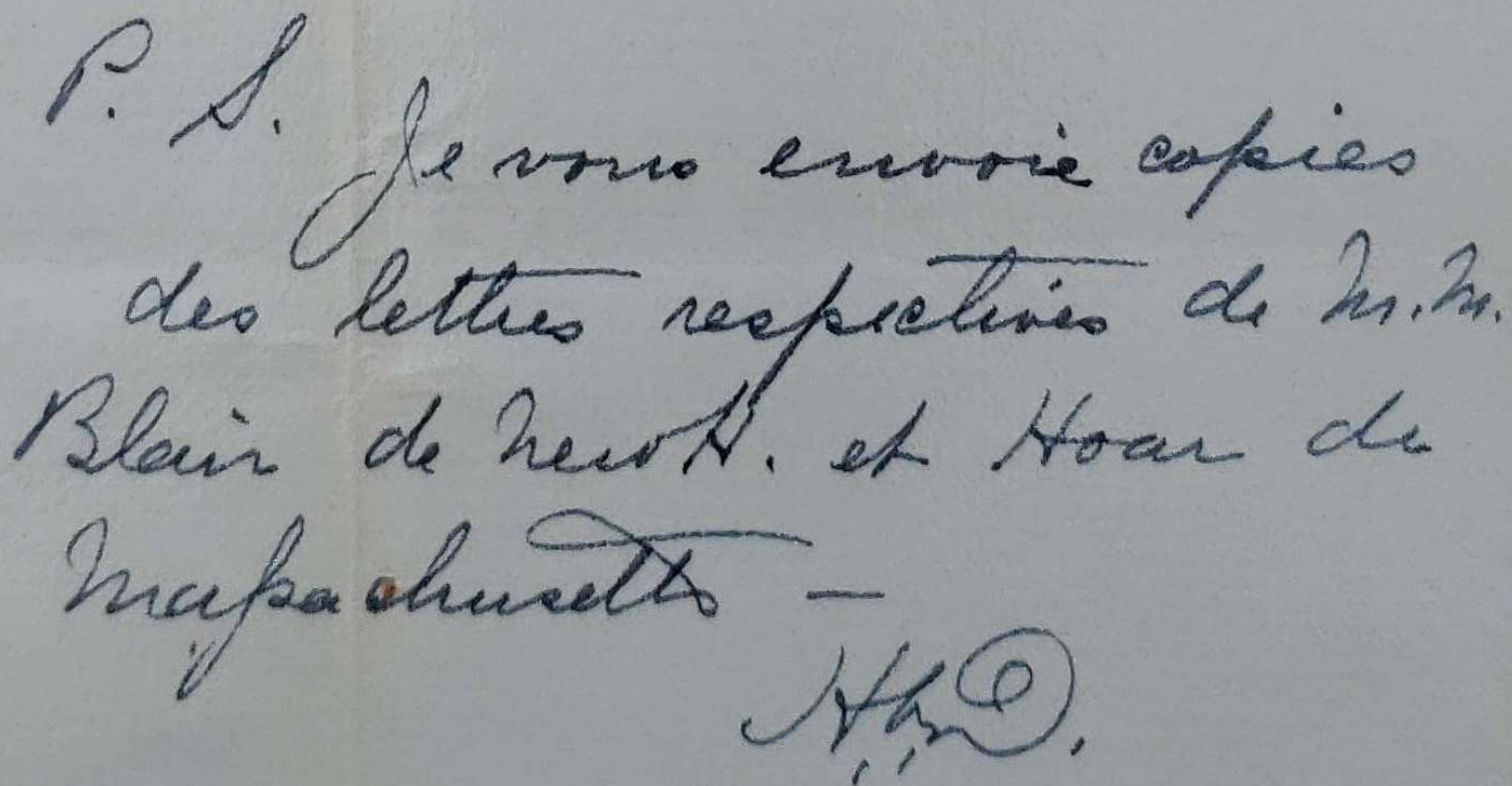 P. S. Je vous envoie copies
des lettres respectives de M. M.
Blair de New H. et Hoar de
Massachusetts —